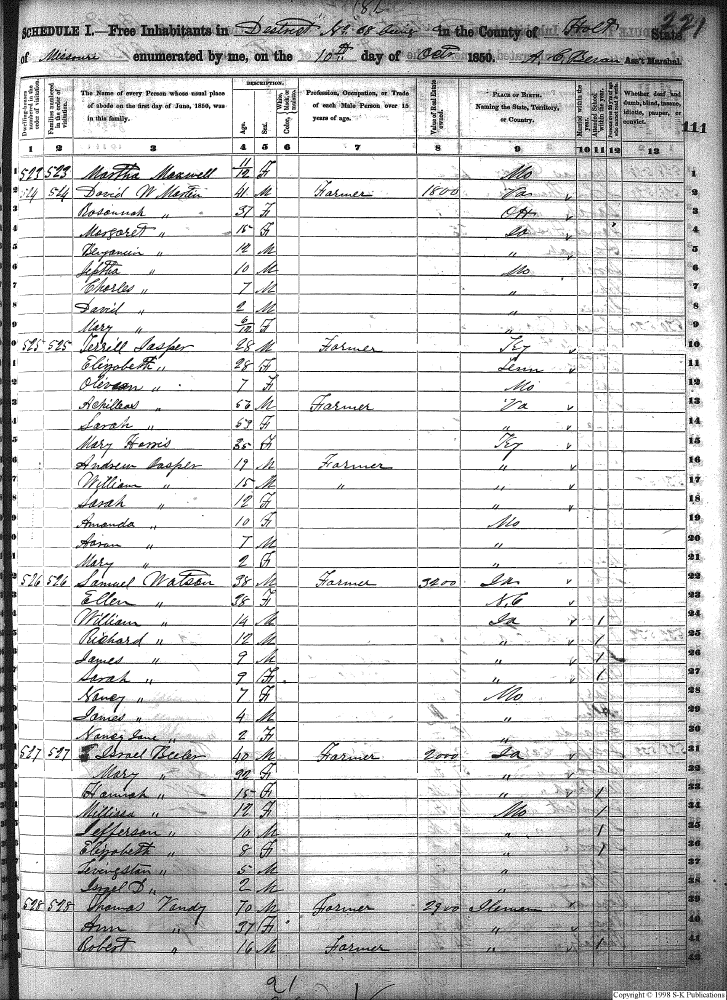 SCHEDULE I.—Free Inhabitants in District No 68 in the County of Holt State 221
of Missouri enumerated by me, on the 10th day of Octr 1850. Ass't Marshal.
Dwelling-houses numbered in the order of visitation.
Families numbered in the order of visitation.
The Name of every Person whose usual place of abode on the first day of June, 1850, was in this family.
DESCRIPTION.
Age.
Sex.
Color, White, black, or mulatto.
Profession, Occupation, or Trade of each Male Person over 15 years of age.
Value of Real Estate owned.
PLACE OF BIRTH. Naming the State, Territory, or Country.
Married within the year.
Whether deaf and dumb, blind, insane, idiotic, pauper, or convict.
111
1 2 3 4 5 6 7 8 9 10 11 12 13
1 523 523 Martha Maxwell 11/12 F Mo 1
2 524 524 David W Martin 41 M Farmer 1800 Va 2
3 Rosannah " 37 F 3
4 Margaret " 15 F Ia 4
5 Benjamin " 12 M " 5
6 Jeptha " 10 M Mo 6
7 Charles " 7 M " 7
8 David " 2 M " 8
9 Mary " 6/12 F " 9
10 525 525 Terrill Jasper 28 M Farmer Ky 10
11 Elizabeth " 28 F Tenn 11
12 " 7 F Mo 12
13 Achilleas " 53 M Farmer Va 13
14 Sarah " 59 F " 14
15 Mary Harris 35 F Ky 15
16 Andrew Jasper 19 M Farmer " 16
17 William " 15 M " " 17
18 Sarah " 12 F " 18
19 Amanda " 10 F Mo 19
20 " 7 M " 20
21 Mary " 2 F " 21
22 526 526 Samuel Watson 38 M Farmer 3200 Ia 22
23 Ellen " 38 F N.C 23
24 William " 14 M Ia 1 24
25 Richard " 12 M " 1 25
26 James " 9 M " 1 26
27 Sarah " 9 F " 1 27
28 Nancy " 7 F Mo 28
29 James " 4 M " 29
30 Nancy Jane " 2 F " 30
31 527 527 Israel Beeler 40 M Farmer 2000 Ia 31
32 Mary " F " 32
33 Hannah " 15 F " 1 33
34 Millissa " 12 F Mo 1 34
35 Jefferson " 10 M " 1 35
36 Elizabeth " 8 F " 1 36
37 Levingston " 5 M " 37
38 Israel D " 2 M " 38
39 528 528 Thomas Vandy 70 M Farmer 2900 39
40 Ann " 37 F " 40
41 Robert " 16 M Farmer " 1 41
42
91
Copyright © 1998 S-K Publications